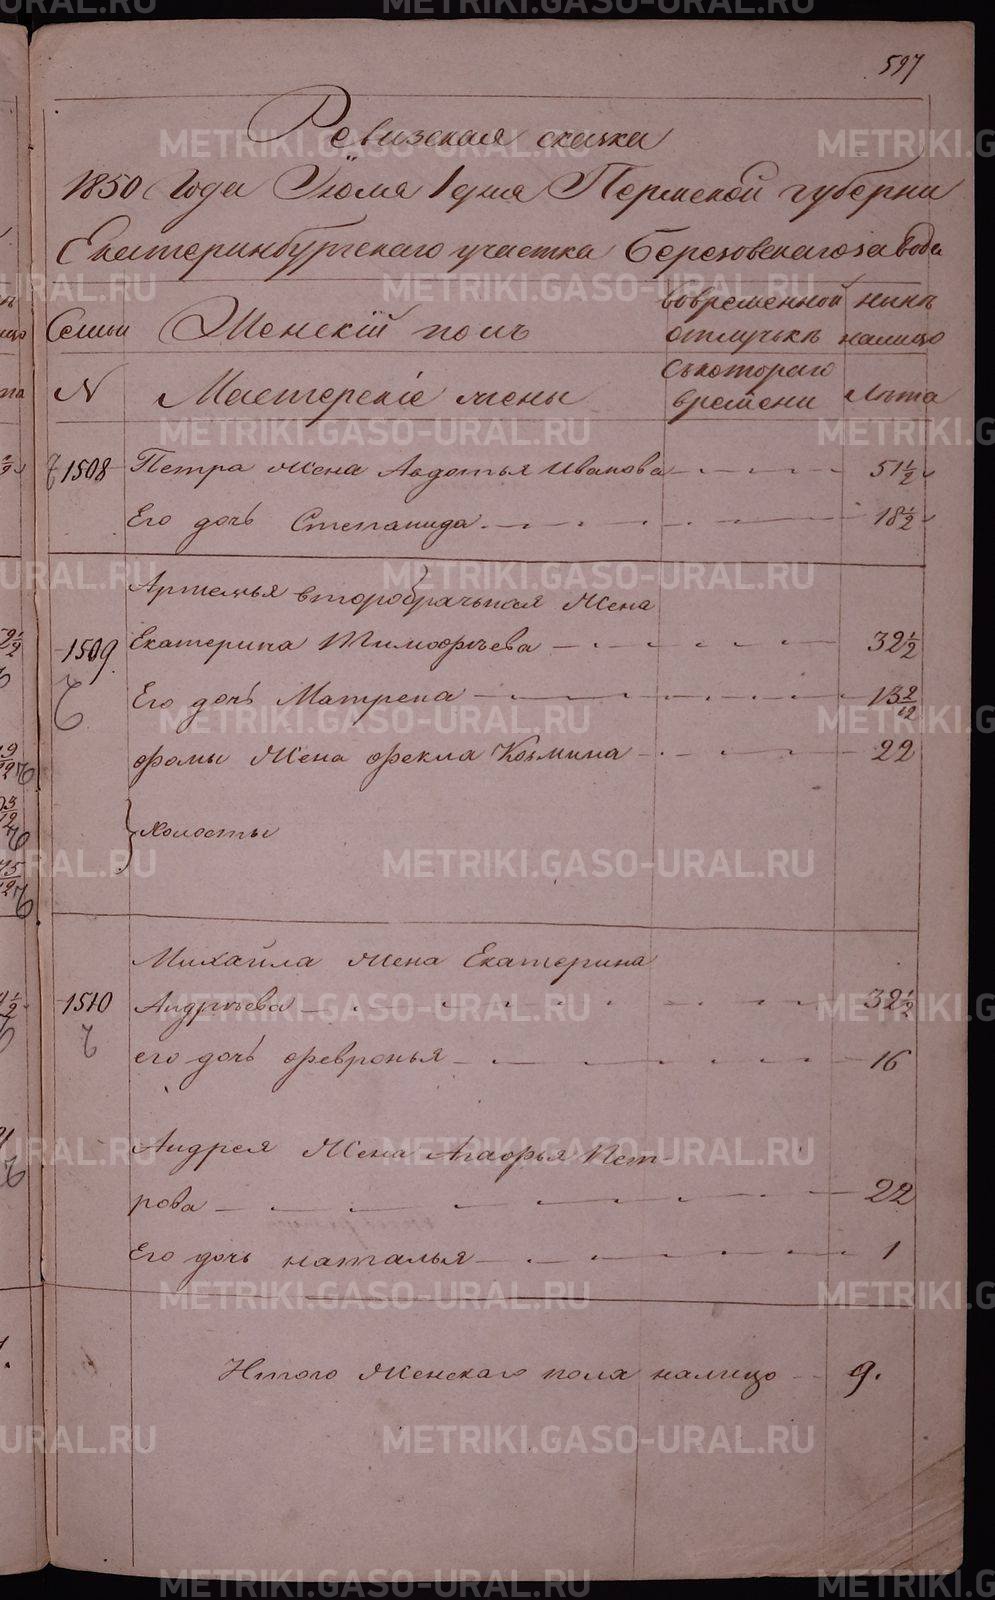 597
Ревизская сказка
1850 Года Июля 1 дня Пермской губерни
Екатеринбургского участка Березовскаго завода
Семьи Женскій полъ вовременной отлучкѣ ныне налицо
N Мастерскіе жены Съкотораго времени Лѣта
1508 Петра жена Авдотья Иванова 51 1/2
Его дочь Степанида 18 1/2
Артемья второбрачьная Жена
1509 Екатерина Тимофѣева 32 1/2
Его дочь Матрена 13 2/12
фомы Жена фекла Козмина 22
холосты
Михайла жена Екатерина
1510 Андрѣева 32 1/2
его дочь февронья 16
Андрея Жена Агафья Пет-
рова 22
Его дочь наталья 1
Итого Женскаго пола налицо 9.
METRIKI.GASO-URAL.RU